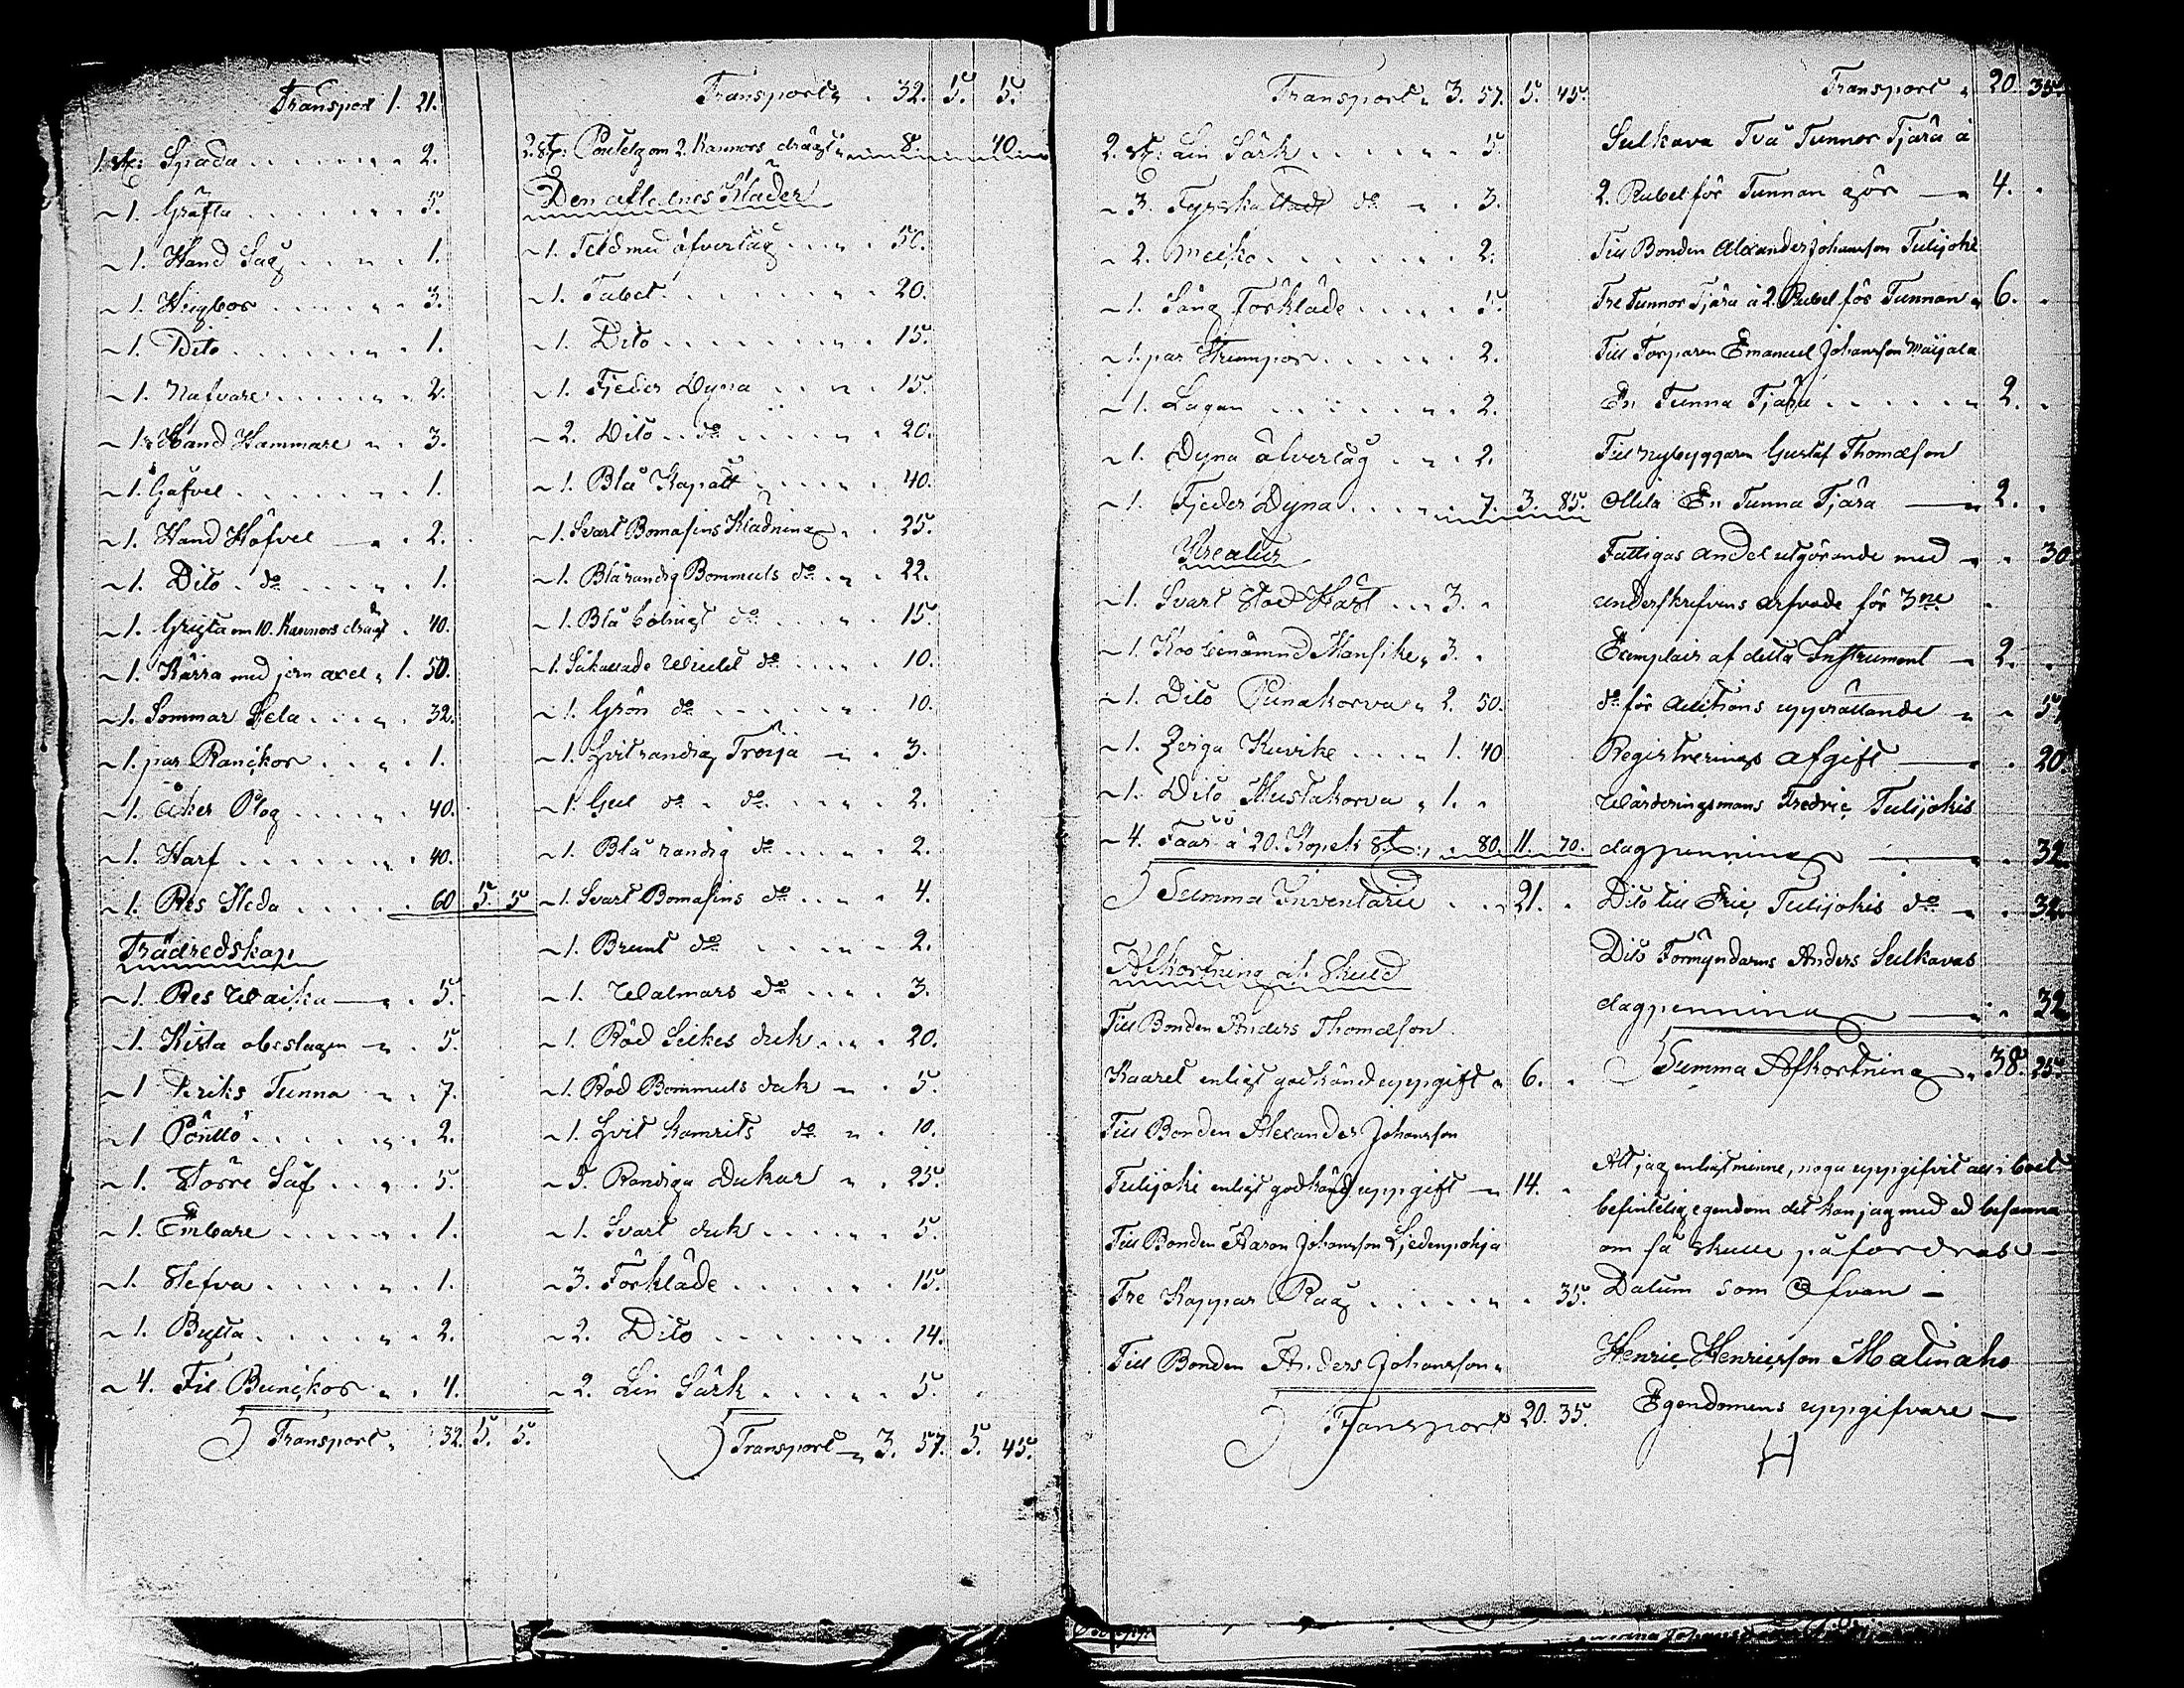 Transport 1. 21.
1. st: Spada . . . . . . . 2.
" 1. Gräfta . . . . . . . 5.
" 1. Hand Såg . . . . 1.
" 1. Hugbor . . . . . 3.
" 1. Dito . . . . . . . 1.
" 1. Nafvare . . . . . 2.
" 1. Hand Hammare " . 3.
" 1. Gafvel . . . . . . 1.
" 1. Hand Höfvel — " . 2.
" 1. Dito . do . . . . 1.
" 1. Gryta om 10. Kannors drägt . 40.
" 1. Kärra med jern axel " 1. 50.
" 1. Sommar Sela . . . . 32.
" 1. par Ranckor . . . . 1.
" 1. Åker Plog . . . . . 40.
" 1. Harf . . . . . . . 40.
" 1. Res Släda . . . . . 60 5. 5
Trädredskap
" 1. Res Wacka — " . 5.
" 1. Kista obeslagen " . 5.
" 1. Dricks Tunna " . 7.
" 1 Pönttö . . . . . 2.
" 1. Större Såf . . . . 5.
" 1. Embare . . . . . 1.
" 1. Stefva . . . . . . 1.
" 1. Bytta . . . . . . 2.
" 4. Fil Bunckor " . 4.
Transport " 32. 5. 5.
Transport " . 32. 5. 5.
2. st: Boutelg om 2. Kannors drägt . 8. 40.
Den aflednes Kläder
" 1. Fäld med åfvertåg . . . 50.
" 1. Tabet . . . . . . . 20.
" 1. Dito . . . . . . . 15.
" 1. Fjeder Dyna . . . . 15.
" 2. Dito . do . . . . 20.
" 1. Blå Kapått . . . . . 40.
" 1. Svart Bomasins Klädning . 25.
" 1. Blårandig Bommuls do . . 22.
" 1. Blå bolmigt do . . . . 15.
" 1. Såkallade do . . . . 10.
" 1. Grön do . . . . . . 10.
" 1. Hvitrandig Tröija " . 3.
" 1. Gul do . do . . . . 2.
" 1. Blå randig do . . . . 2.
" 1. Svart Bomasins do . . . 4.
" 1. Brunt do . . . . . 2.
" 1. Walmars do . . . 3.
" 1. Röd Silkes duk . . . 20.
" 1. Röd Bommuls duk " . 5.
" 1. Hvit Kamrits do " . 10.
" 5. Randiga Dukar " . 25.
" 1. Svart duk . . . . . 5.
" 3. Förkläde . . . . . . 15.
" 2. Dito . . . . . . . 14.
" 2. Lin Särk . . . . . 5.
Transport " 3. 57. 5. 45.
Transport " 3. 57. 5. 45.
2. st: Lin Särk . . . . . 5.
" 3. Fyrskaftade do " . 3.
" 2. . . . . . . 2.
" 1. Säng Förkläde . . . . 5.
" 1. par Strumpor . . . . . 2.
" 1. Lagan . . . . . . 2.
" 1. Dyna åfvertåg . . . 2.
" 1. Fjeder Dyna . . . . . 7. 3. 85.
Kreatur
" 1. Svart Stod Häst . . . 3. "
" 1. Koo benämnd Mansike " 3. .
" 1. Dito Punakorva " 2. 50.
" 1. Qviga Kuvike . . . . 1. 40
" 1. Dito Mustakorva " 1. "
" 4. Fåår à 20. Kopek St: . 80. 11. 70.
Summa Inventarie . . . 21. .
Afkortning och Skuld
Till Bonden Anders Thomasson
Kaaret enligt godkänd uppgift " 6. .
Till Bonden Alexander Johansson
Tulijoki enligt godkänd uppgift " 14. .
Till Bonden Aaron Johansson Liedenpohja
Tre Kappar Råg . . . . . . 35.
Till Bonden Anders Johansson
Transport 20. 35.
Transport " 20. 35.
Sulkava Två Tunnor Tjära à
2. Rubel för Tunnan gör — " 4. .
Till Bonden Alexander Johansson Tulijoki
Tre Tunnor Tjära à 2. Rubel för Tunnan " 6. .
Till Torparen Emanuel Johansson Maijala
En Tunna Tjära . . . . . . 2. .
Till Nybyggaren Gustaf Thomasson
Ollila En Tunna Tjära — " 2. .
Fattigas andel utgörande med " . 30.
underskrefvens arfvode för 3ne
Exemplair af detta Instrument — " 2. .
do för auctions upprättande " " 57.
Registrerings afgift — " . 20.
Wärderingsmans Fredric Tulijokis
dagpenning — " . 32
Dito till Eric Tulijokis do " . 32
Dito Förmyndarens Anders Sulkavas
dagpenning — " . 32
Summa Afkortning " 38. 25.
Att jag enligt minne, noga uppgifvit all i boet
befintelig egendom det kan jag med ed besanna
om så skulle påfordras —
Datum som Ofvan —
Henric Henricsson Malinaho
Egendomens uppgifvare —
H